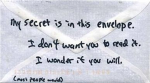 My secret is in this envelope.
I don't want you to read it.
I wonder if you will.
(most people would)